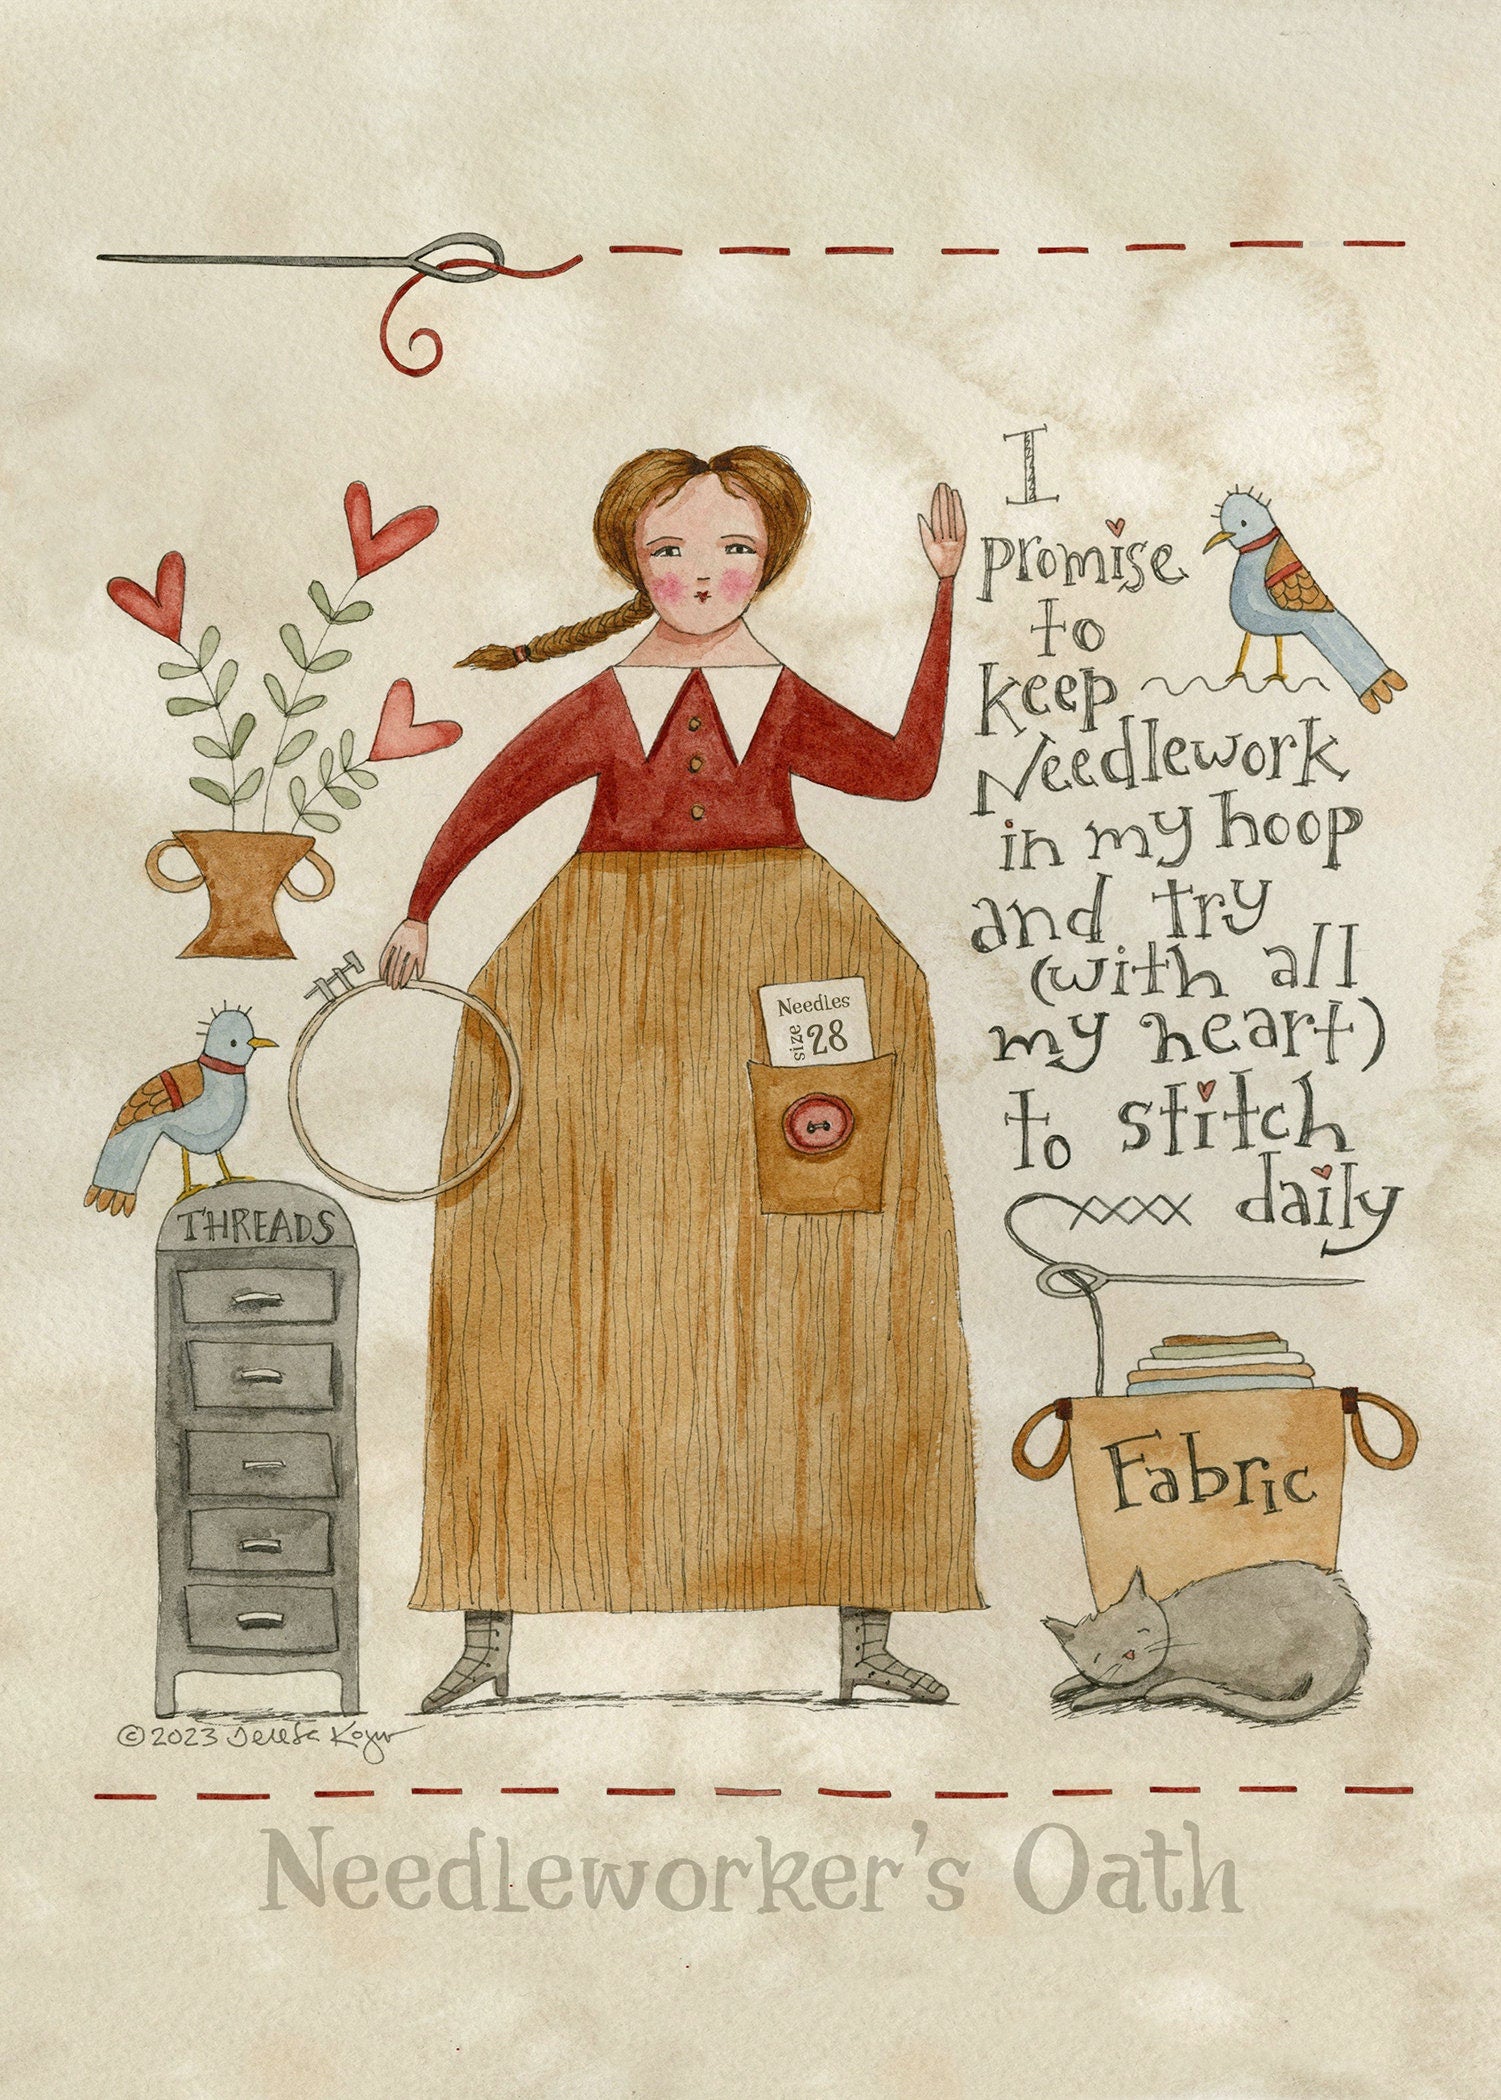 I
promise
to
keep
Needlework
in my hoop
and try
(with all
my heart)
to stitch
daily
Needles
size 28
THREADS
Fabric
©2023 Teresa Kogut
Needleworker's Oath